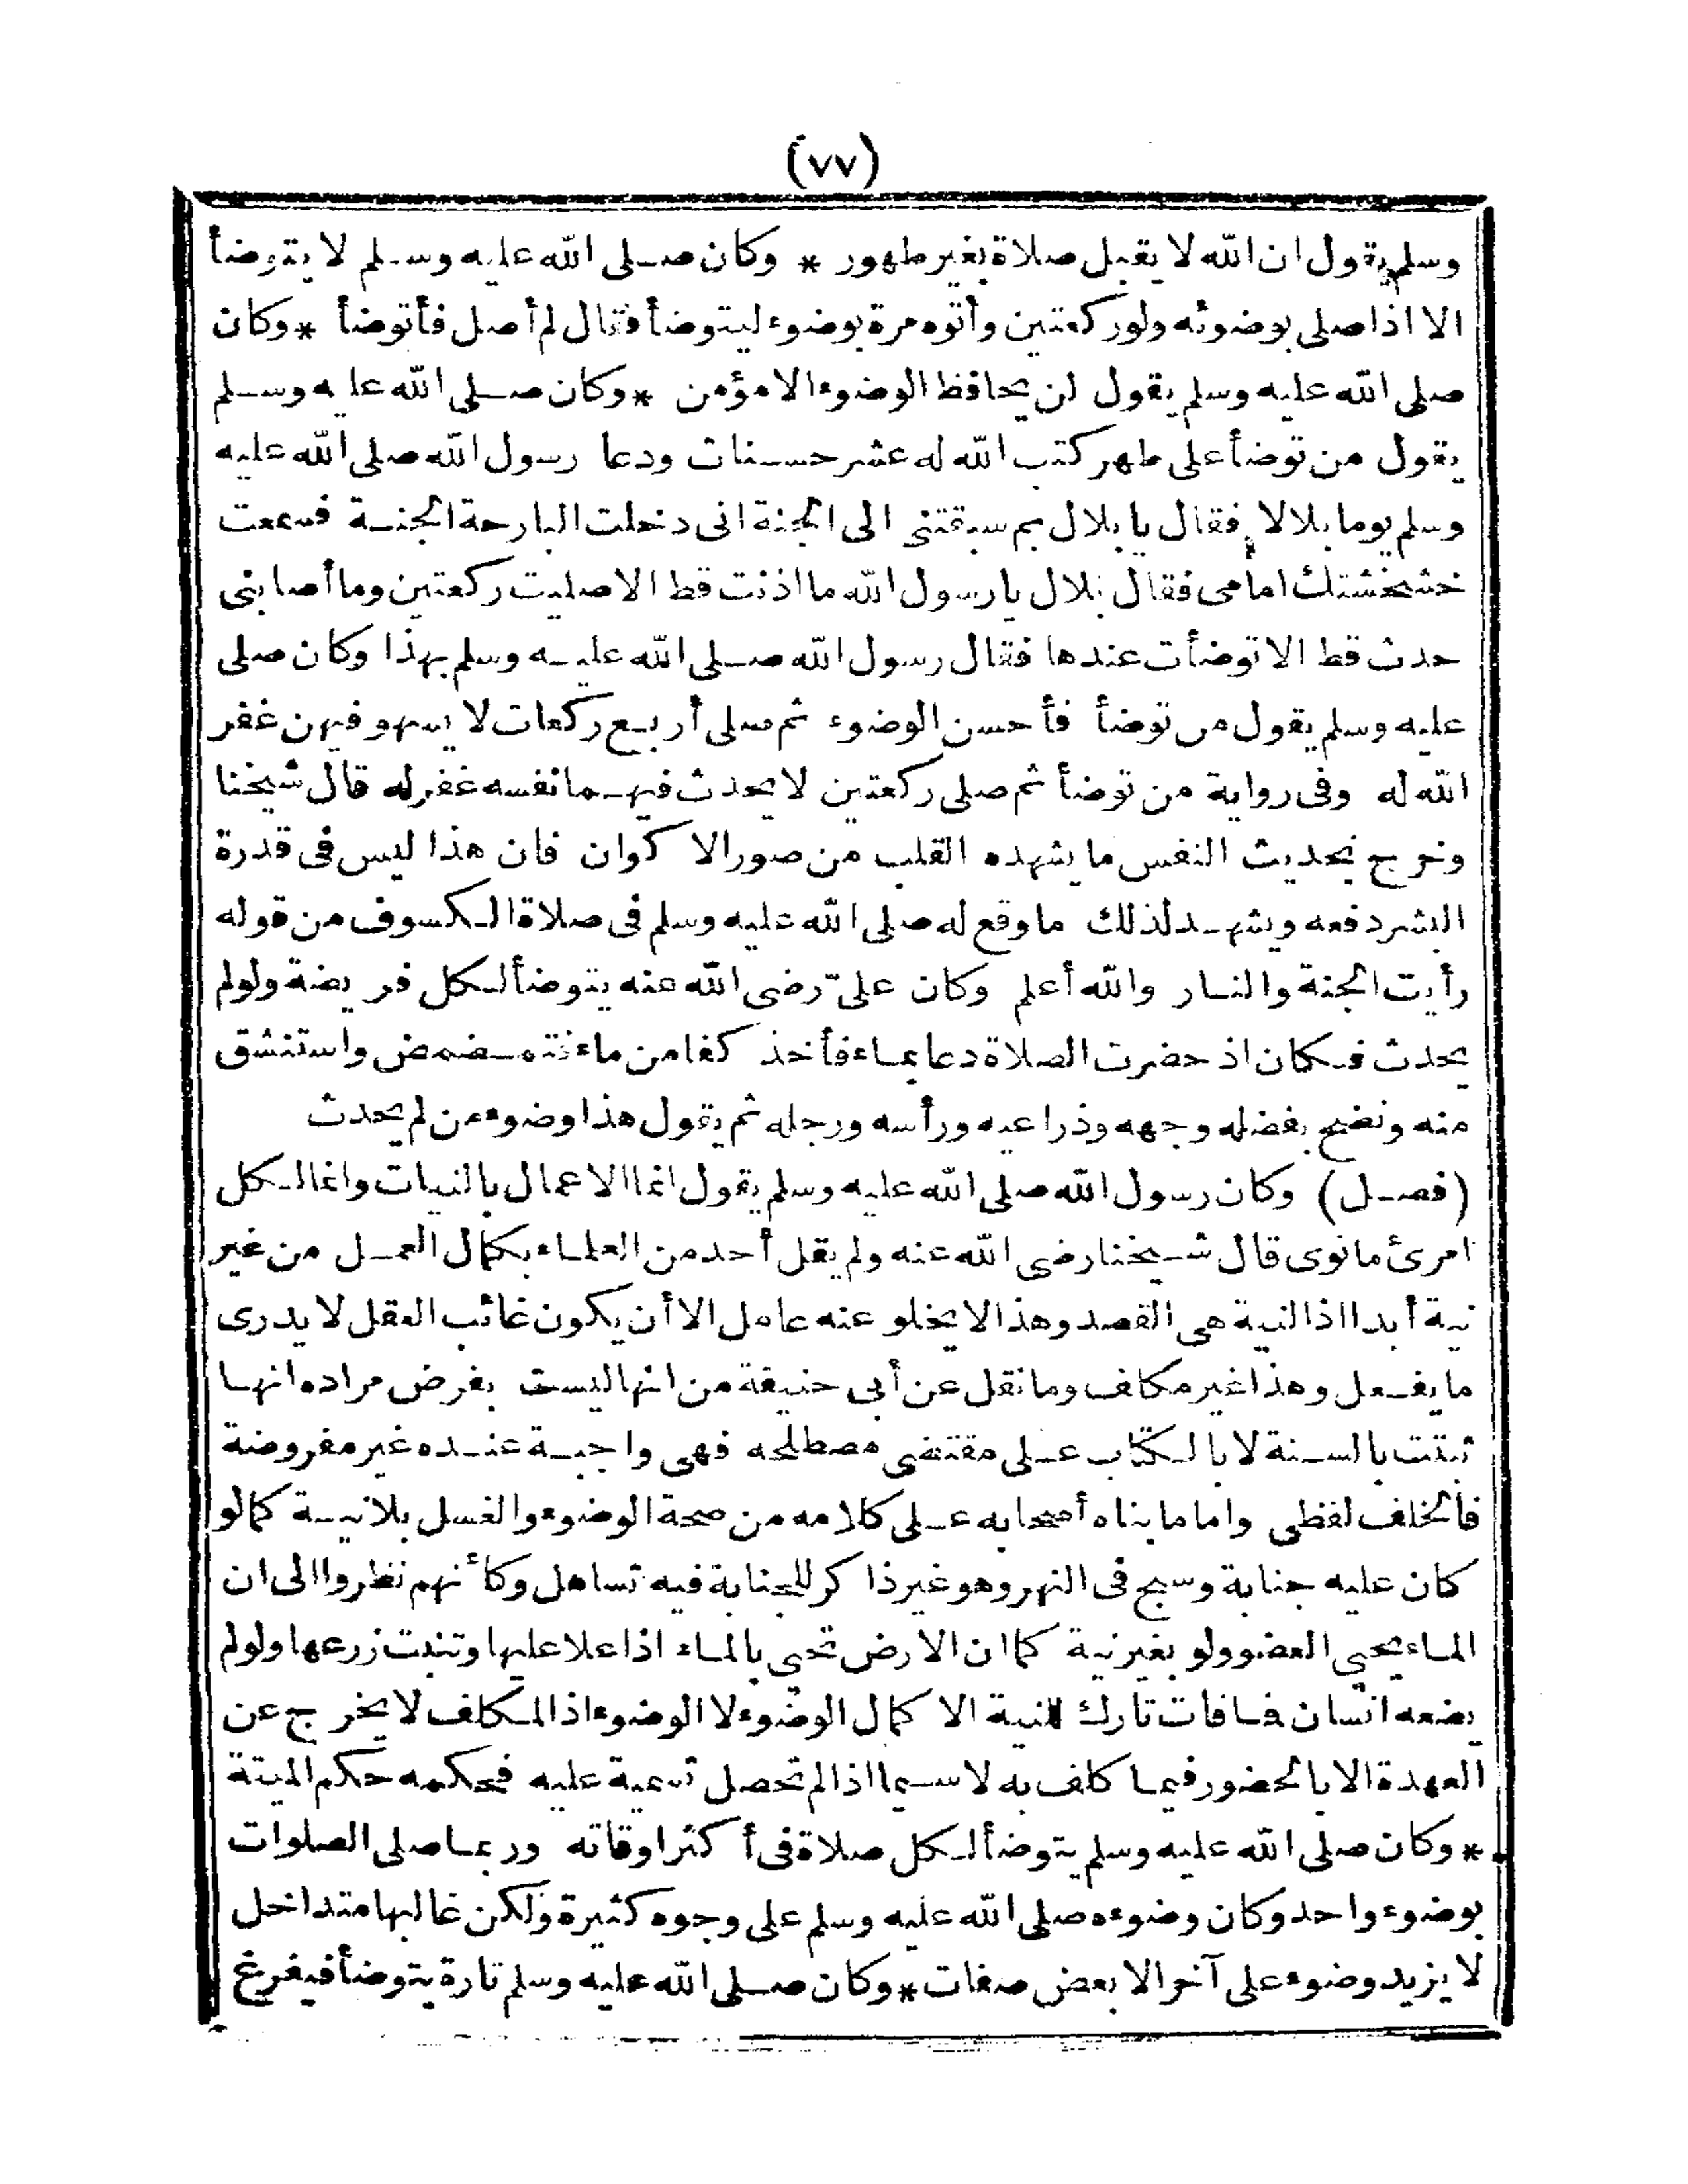 (٧٧)
وسلم يقول ان الله لا يقبل صلاة بغير طهور * وكان صلى الله عليه وسلم لا يتوضأ
الا اذا صلى بوضوئه ولو ركعتين وأتوه مرة بوضوء ليتوضأ فقال لم أصل فأتوضأ * وكان
صلى الله عليه وسلم يقول لن يحافظ الوضوء الا مؤمن * وكان صلى الله عليه وسلم
يقول من توضأ على طهر كتب الله له عشر حسنات ودعا رسول الله صلى الله عليه
وسلم يوما بلالا فقال يا بلال بم سبقتنى الى الجنة انى دخلت البارحة الجنة فسمعت
خشخشتك امامى فقال بلال يا رسول الله ما اذنت قط الا صليت ركعتين وما أصابنى
حدث قط الا توضأت عندها فقال رسول الله صلى الله عليه وسلم بهذا وكان صلى
عليه وسلم يقول من توضأ فأحسن الوضوء ثم صلى أربع ركعات لا يسهو فيهن غفر
الله له وفى رواية من توضأ ثم صلى ركعتين لا يحدث فيهما نفسه غفر له قال شيخنا
وخرج بحديث النفس ما يشهده القلب من صور الاكوان فان هذا ليس فى قدرة
البشر دفعه ويشهد لذلك ما وقع له صلى الله عليه وسلم فى صلاة الكسوف من قوله
رأيت الجنة والنار والله أعلم وكان علىّ رضى الله عنه يتوضأ لكل فريضة ولو لم
يحدث فكان اذ حضرت الصلاة دعا بماء فأخذ كفا من ماء فتمضمض واستنشق
منه ونضح بفضله وجهه وذراعيه ورأسه ورجله ثم يقول هذا وضوء من لم يحدث
(فصل) وكان رسول الله صلى الله عليه وسلم يقول انما الاعمال بالنيات وانما لكل
امرئ ما نوى قال شيخنا رضى الله عنه ولم يقل أحد من العلماء بكمال العمل من غير
نية أبدا اذ النية هى القصد وهذا لا يخلو عنه عامل الا أن يكون غائب العقل لا يدرى
ما يفعل وهذا غير مكلف وما نقل عن أبى حنيفة من انها ليست بفرض مراده انها
ثبتت بالسنة لا بالكتاب على مقتضى مصطلحه فهى واجبة عنده غير مفروضة
فالخلف لفظى واما ما بناه أصحابه على كلامه من صحة الوضوء والغسل بلا نية كما لو
كان عليه جنابة وسبح فى النهر وهو غير ذاكر للجنابة فيه تساهل وكأنهم نظروا الى ان
الماء يحيى العضو ولو بغير نية كما ان الارض تحيى بالماء اذا علا عليها وتنبت زرعها ولو لم
يضعه انسان فما فات تارك النية الا كمال الوضوء لا الوضوء اذ المكلف لا يخرج عن
العهدة الا بالحضور فيما كلف به لا سيما اذا لم تحصل تسمية عليه فحكمه حكم الميتة
* وكان صلى الله عليه وسلم يتوضأ لكل صلاة فى أكثر اوقاته وربما صلى الصلوات
بوضوء واحد وكان وضوءه صلى الله عليه وسلم على وجوه كثيرة ولكن غالبها متداخل
لا يزيد وضوء على آخر الا بعض صفات * وكان صلى الله عليه وسلم تارة يتوضأ فيفرغ